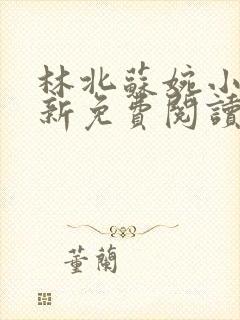 林北蘇婉小
新免費閱讀
董蘭